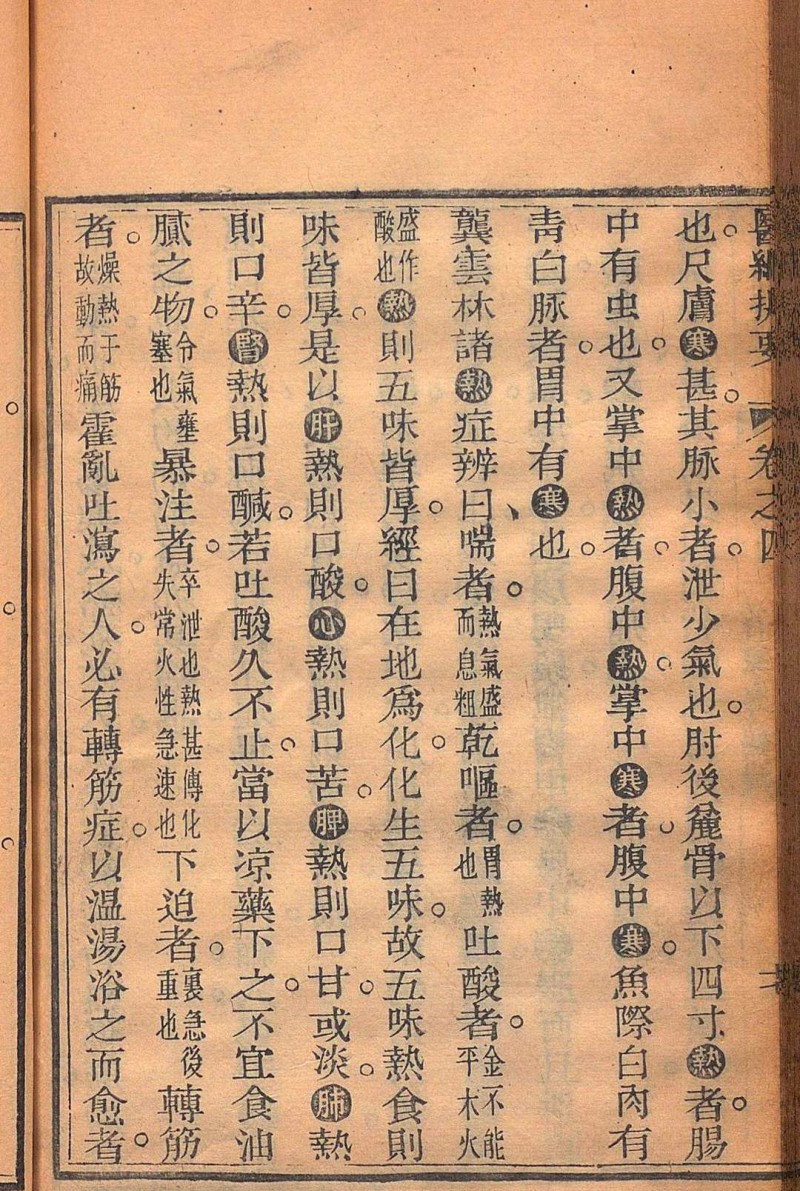 醫經提要 卷之四
也尺膚寒甚其脉小者泄少氣也肘後麄骨以下四寸熱者腸
中有虫也又掌中熱者腹中熱掌中寒者腹中寒魚際白肉有
青白脉者胃中有寒也
龔雲林諸熱症辨曰喘者熱氣盛而息粗乾嘔者胃熱也吐酸者金不能平木火
盛作酸也熱則五味皆厚經曰在地爲化化生五味故五味熱食則
味皆厚是以肝熱則口酸心熱則口苦脾熱則口甘或淡肺熱
則口辛腎熱則口醎若吐酸久不止當以凉藥下之不宜食油
膩之物令氣壅塞也暴注者卒泄也熱甚傳化失常火性急速也下迫者裏急後重也轉筋
者燥熱于筋故動而痛霍亂吐瀉之人必有轉筋症以温湯浴之而愈者